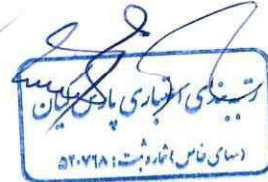 رتبه‌بندی اعتباری پارس کیان
(سهامی خاص) شماره ثبت: ۵۲۰۷۶۸